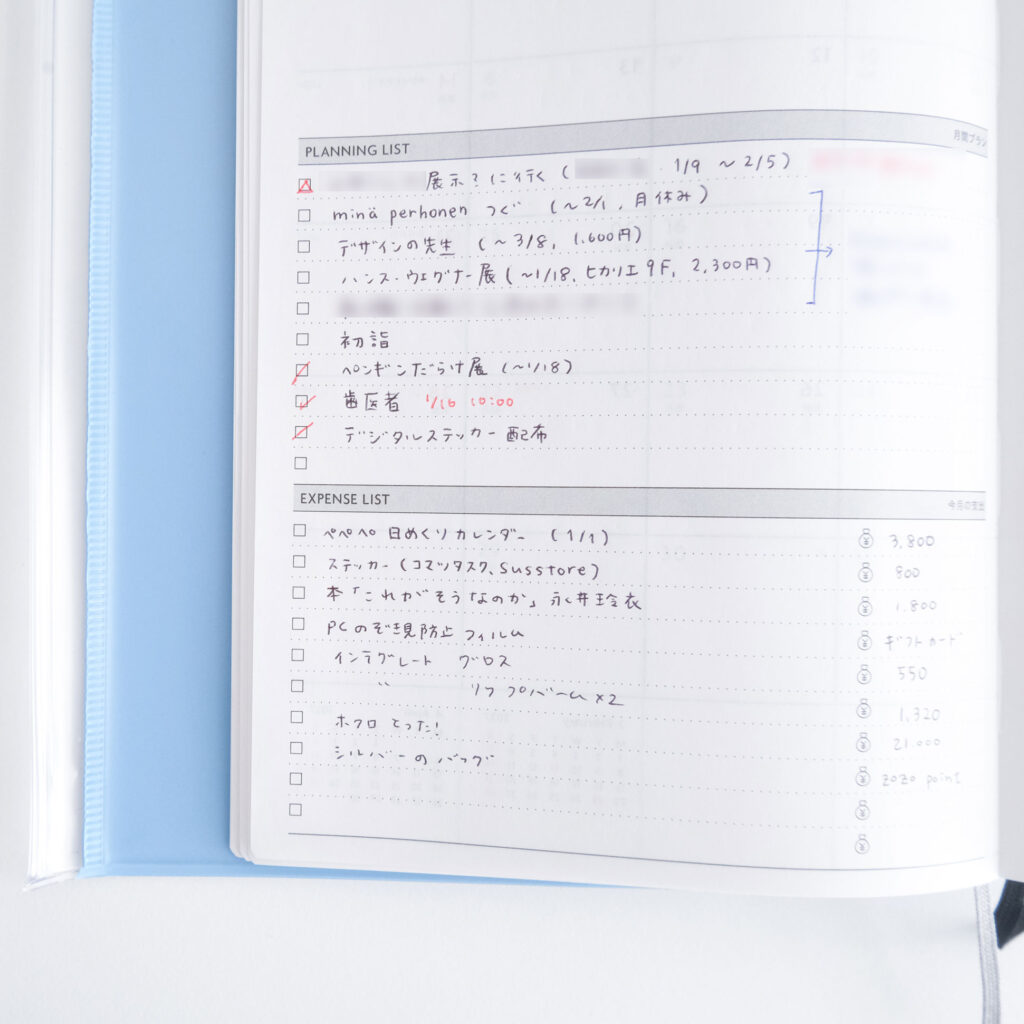 PLANNING LIST 月間プラン
展示?に行く ( 1/9 ~ 2/5)
minä perhonen つぐ (~2/1, 月休み)
デザインの先生 (~3/8, 1,600円)
ハンス・ウェグナー展 (~1/18, ヒカリエ9F, 2,300円)
初詣
ペンギンだらけ展 (~1/18)
歯医者 1/16 10:00
デジタルステッカー配布
EXPENSE LIST 今月の支出
ペペペ 日めくりカレンダー (1/1) 3,800
ステッカー (コマツタスク、susstore) 800
本「これがそうなのか」永井玲衣 1,800
PCのぞき見防止フィルム ギフトカード
インテグレート グロス 550
〃 リップバーム×2 1,320
ホクロとった! 21,000
シルバーのバッグ ZOZO point